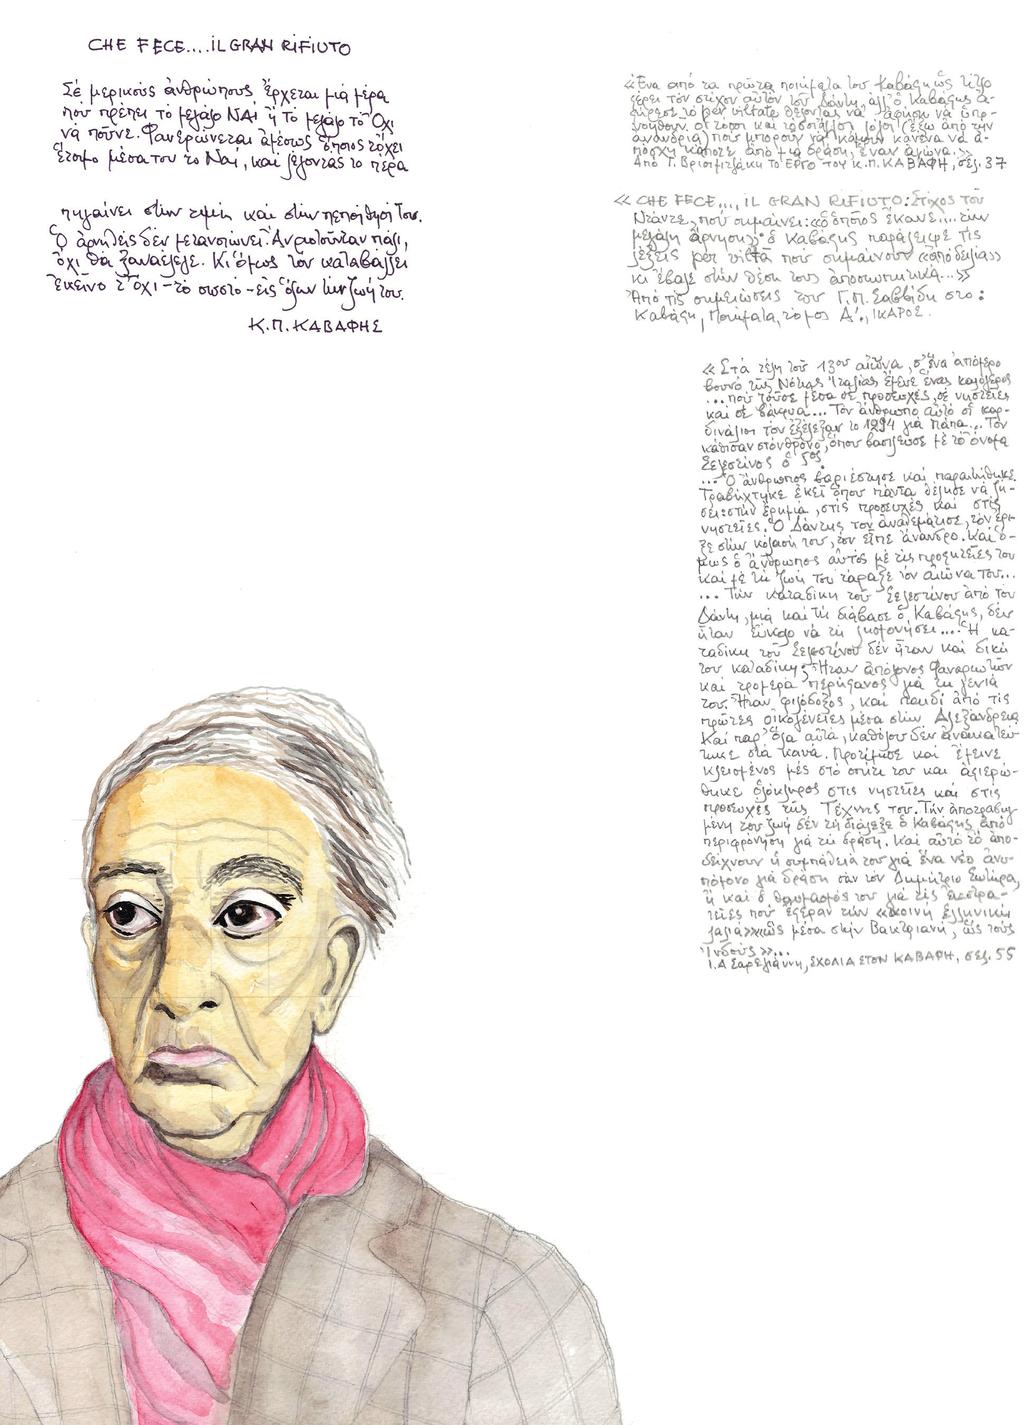 CHE FECE....iL GRAN RiFiUTO
Σέ μερικούς ἀνθρώπους ἔρχεται μιά μέρα
πού πρέπει τό μεγάλο ΝΑί ἤ τό μεγάλο τό Ὄχι
νά ποῦνε. Φανερώνεται ἀμέσως ὅποιος τὄχει
ἕτοιμο μέσα του τό Ναί, καί λέγοντάς το πέρα
πηγαίνει στήν τιμή καί στήν πεποίθησή του.
Ὁ ἀρνηθείς δέν μετανοιώνει. Ἄν ρωτιοῦνταν πάλι,
ὄχι θά ξαναέλεγε. Κι ὅμως τόν καταβάλλει
ἐκεῖνο τ' ὄχι - τό σωστό - εἰς ὅλην τήν ζωή του.
Κ.Π. ΚΑΒΑΦΗΣ
«Ἕνα ἀπό τά πρῶτα ποιήματα τοῦ Καβάφη ὡς τίτλο
φέρει τόν στίχον αὐτόν τοῦ Δάντη, ἀλλ' ὁ Καβάφης ἀ-
φῄρεσε τό per viltate θέλοντας νά ἀφήση νά ὑπο-
νοηθοῦν οἱ τόσοι καί τόσοι ἄλλοι λόγοι (ἔξω ἀπό τήν
ἀνανδρία) πού μποροῦν νά κάμουν κανένα νά ἀ-
πόσχη κάποτε ἀπό μιά δράση, ἕναν ἀγῶνα.»
Ἀπό Γ. Βρισιμιτζάκη Το ΕΡΓΟ του Κ.Π. ΚΑΒΑΦΗ, σελ. 37
«CHE FECE.... iL GRAN RiFiUTO: Στίχος τοῦ
Ντάντε, πού σημαίνει: «ὁ ὁποῖος ἔκανε.... τήν
μεγάλη ἄρνηση»· ὁ Καβάφης παράλειψε τίς
λέξεις per viltà πού σημαίνουν «ἀπό δειλία»
κι ἔβαλε στήν θέση τους ἀποσιωπητικά...»
Ἀπό τίς σημειώσεις του Γ.Π. Σαββίδη στο:
Καβάφη, Ποιήματα, τόμος Α'., ΙΚΑΡΟΣ.
«Στά τέλη τοῦ 13ου αἰῶνα, σ' ἕνα ἀπόμερο
βουνό τῆς Νότιας Ἰταλίας ἔμενε ἕνας καλόγερος
... πού ζοῦσε μέσα σέ προσευχές, σέ νηστεῖες
καί σέ δάκρυα... Τόν ἄνθρωπο αὐτό οἱ καρ-
δινάλιοι τόν ἐξέλεξαν το 1294 γιά πάπα... Τόν
κάθισαν στόν θρόνο, ὅπου βασίλευσε μέ τό ὄνομα
Σελεστίνος ὁ 5ος.
... Ὁ ἄνθρωπος βαριέστησε καί παραιτήθηκε.
Τραβήχτηκε ἐκεῖ ὅπου πάντα θέλησε νά ζή-
σει: στήν ἐρημιά, στίς προσευχές καί στίς
νηστεῖες. Ὁ Δάντης τον ἀναθεμάτισε, τόν ἔρι-
ξε στήν κόλασή του, τόν εἶπε ἄνανδρο. Καί ὅ-
μως ὁ ἄνθρωπος αὐτός μέ τίς προφητεῖες του
καί μέ τή ζωή του τάραξε τόν αἰῶνα του...
... Τήν καταδίκη τοῦ Σελεστίνου ἀπό τόν
Δάντη, μιά καί τή διάβασε ὁ Καβάφης, δέν
ἦταν εὔκολο νά τή λησμονήσει.... Ἡ κα-
ταδίκη τοῦ Σελεστίνου δέν ἦταν καί δική
του καταδίκη; Ἦταν ἀπόγονος Φαναριωτῶν
καί τρομερά περήφανος γιά τή γενιά
του. Ἦταν φιλόδοξος, καί παιδί ἀπό τίς
πρῶτες οἰκογένειες μέσα στήν Ἀλεξάνδρεια.
Καί παρ' ὅλα αὐτά, καθόλου δέν ἀνακατεύ-
τηκε στά κοινά. Προτίμησε καί ἔμεινε
κλεισμένος μές στό σπίτι του καί ἀφιερώ-
θηκε ὁλόκληρος στις νηστεῖες καί στίς
προσευχές τῆς Τέχνης του. Τήν ἀποτραβηγ-
μένη του ζωή δέν τή διάλεξε ὁ Καβάφης ἀπό
περιφρόνηση γιά τή δράση. Καί αὐτό τό ἀπο-
δείχνουν ἡ συμπάθειά του γιά ἕνα νέο ἀνυ-
πόμονο γιά δράση σάν τόν Δημήτριο Σωτῆρα,
ἤ καί ὁ θαυμασμός του γιά τίς ἐκστρα-
τεῖες πού ἔφεραν τήν «κοινή ἑλληνική
λαλιά» «ὥς μέσα στήν Βακτριανή, ὥς τούς
Ἰνδούς»...
Ι.Α Σαρεγιάννη, ΣΧΟΛΙΑ ΣΤΟΝ ΚΑΒΑΦΗ, σελ. 55